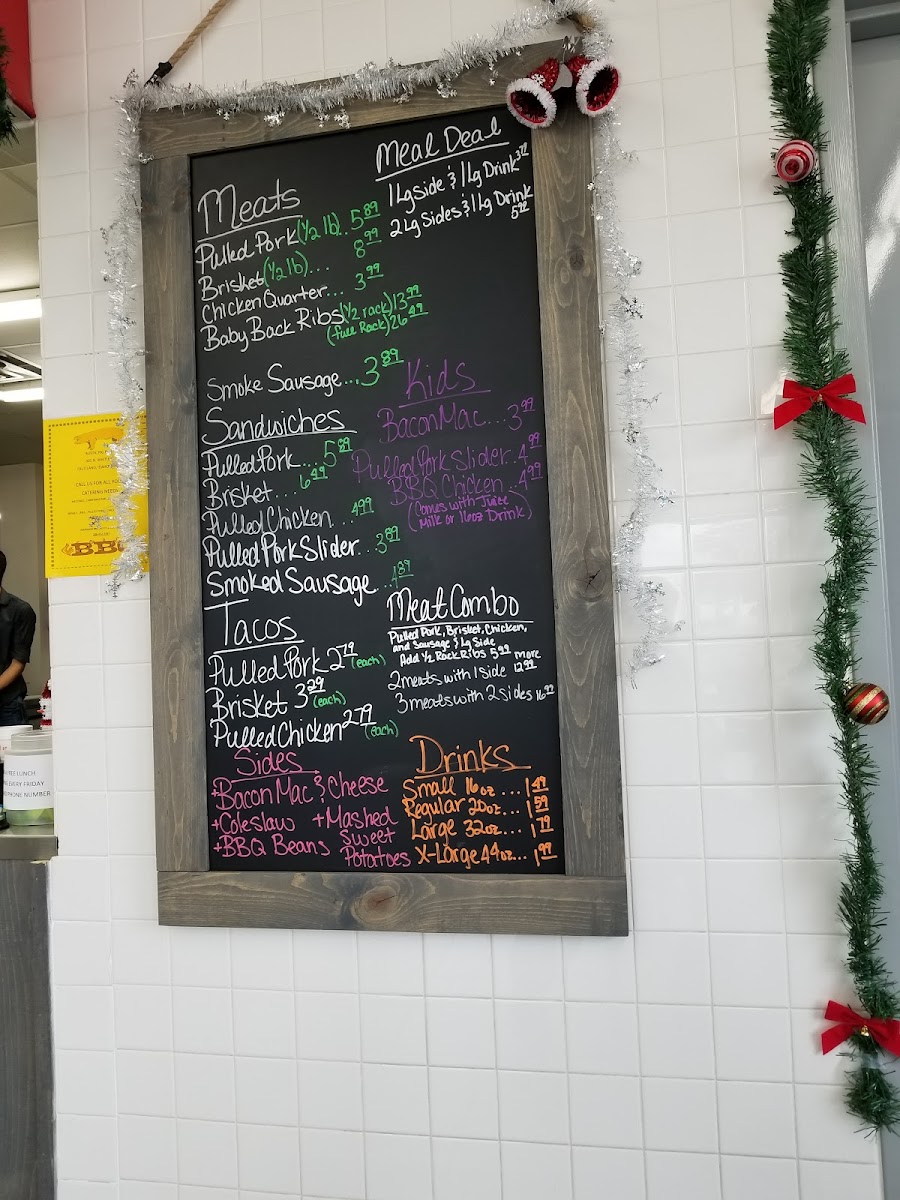 Meats
Pulled Pork (1/2 lb)..5.89
Brisket (1/2 lb).... 8.99
Chicken Quarter... 3.99
Baby Back Ribs (1/2 rack) 13.99
(full Rack) 26.49
Smoke Sausage...3.89
Sandwiches
Pulled Pork... 5.89
Brisket.... 6.49
Pulled Chicken ..4.99
Pulled Pork Slider...3.89
Smoked Sausage ..4.89
Tacos
Pulled Pork 2.79 (each)
Brisket 3.29 (each)
Pulled Chicken 2.79 (each)
Sides
+Bacon Mac & Cheese
+Coleslaw +Mashed
+BBQ Beans Sweet
Potatoes
Meal Deal
1 Lg side & 1 Lg Drink
2 Lg Sides & 1 Lg Drink
5.99
Kids
Bacon Mac...3.99
Pulled Pork Slider..4.99
BBQ Chicken ..4.99
(Comes with Juice
Milk or 16oz Drink)
Meat Combo
Pulled Pork, Brisket, Chicken,
and Sausage & Lg Side
Add 1/2 Rack Ribs 5.99 more
2 meats with 1 side 12.99
3 meats with 2 sides 16.99
Drinks
Small 16oz ...1.49
Regular 20oz...1.59
Large 32oz...1.79
X-Large 44oz...1.99
BBQ
FREE LUNCH
EVERY FRIDAY
PHONE NUMBER